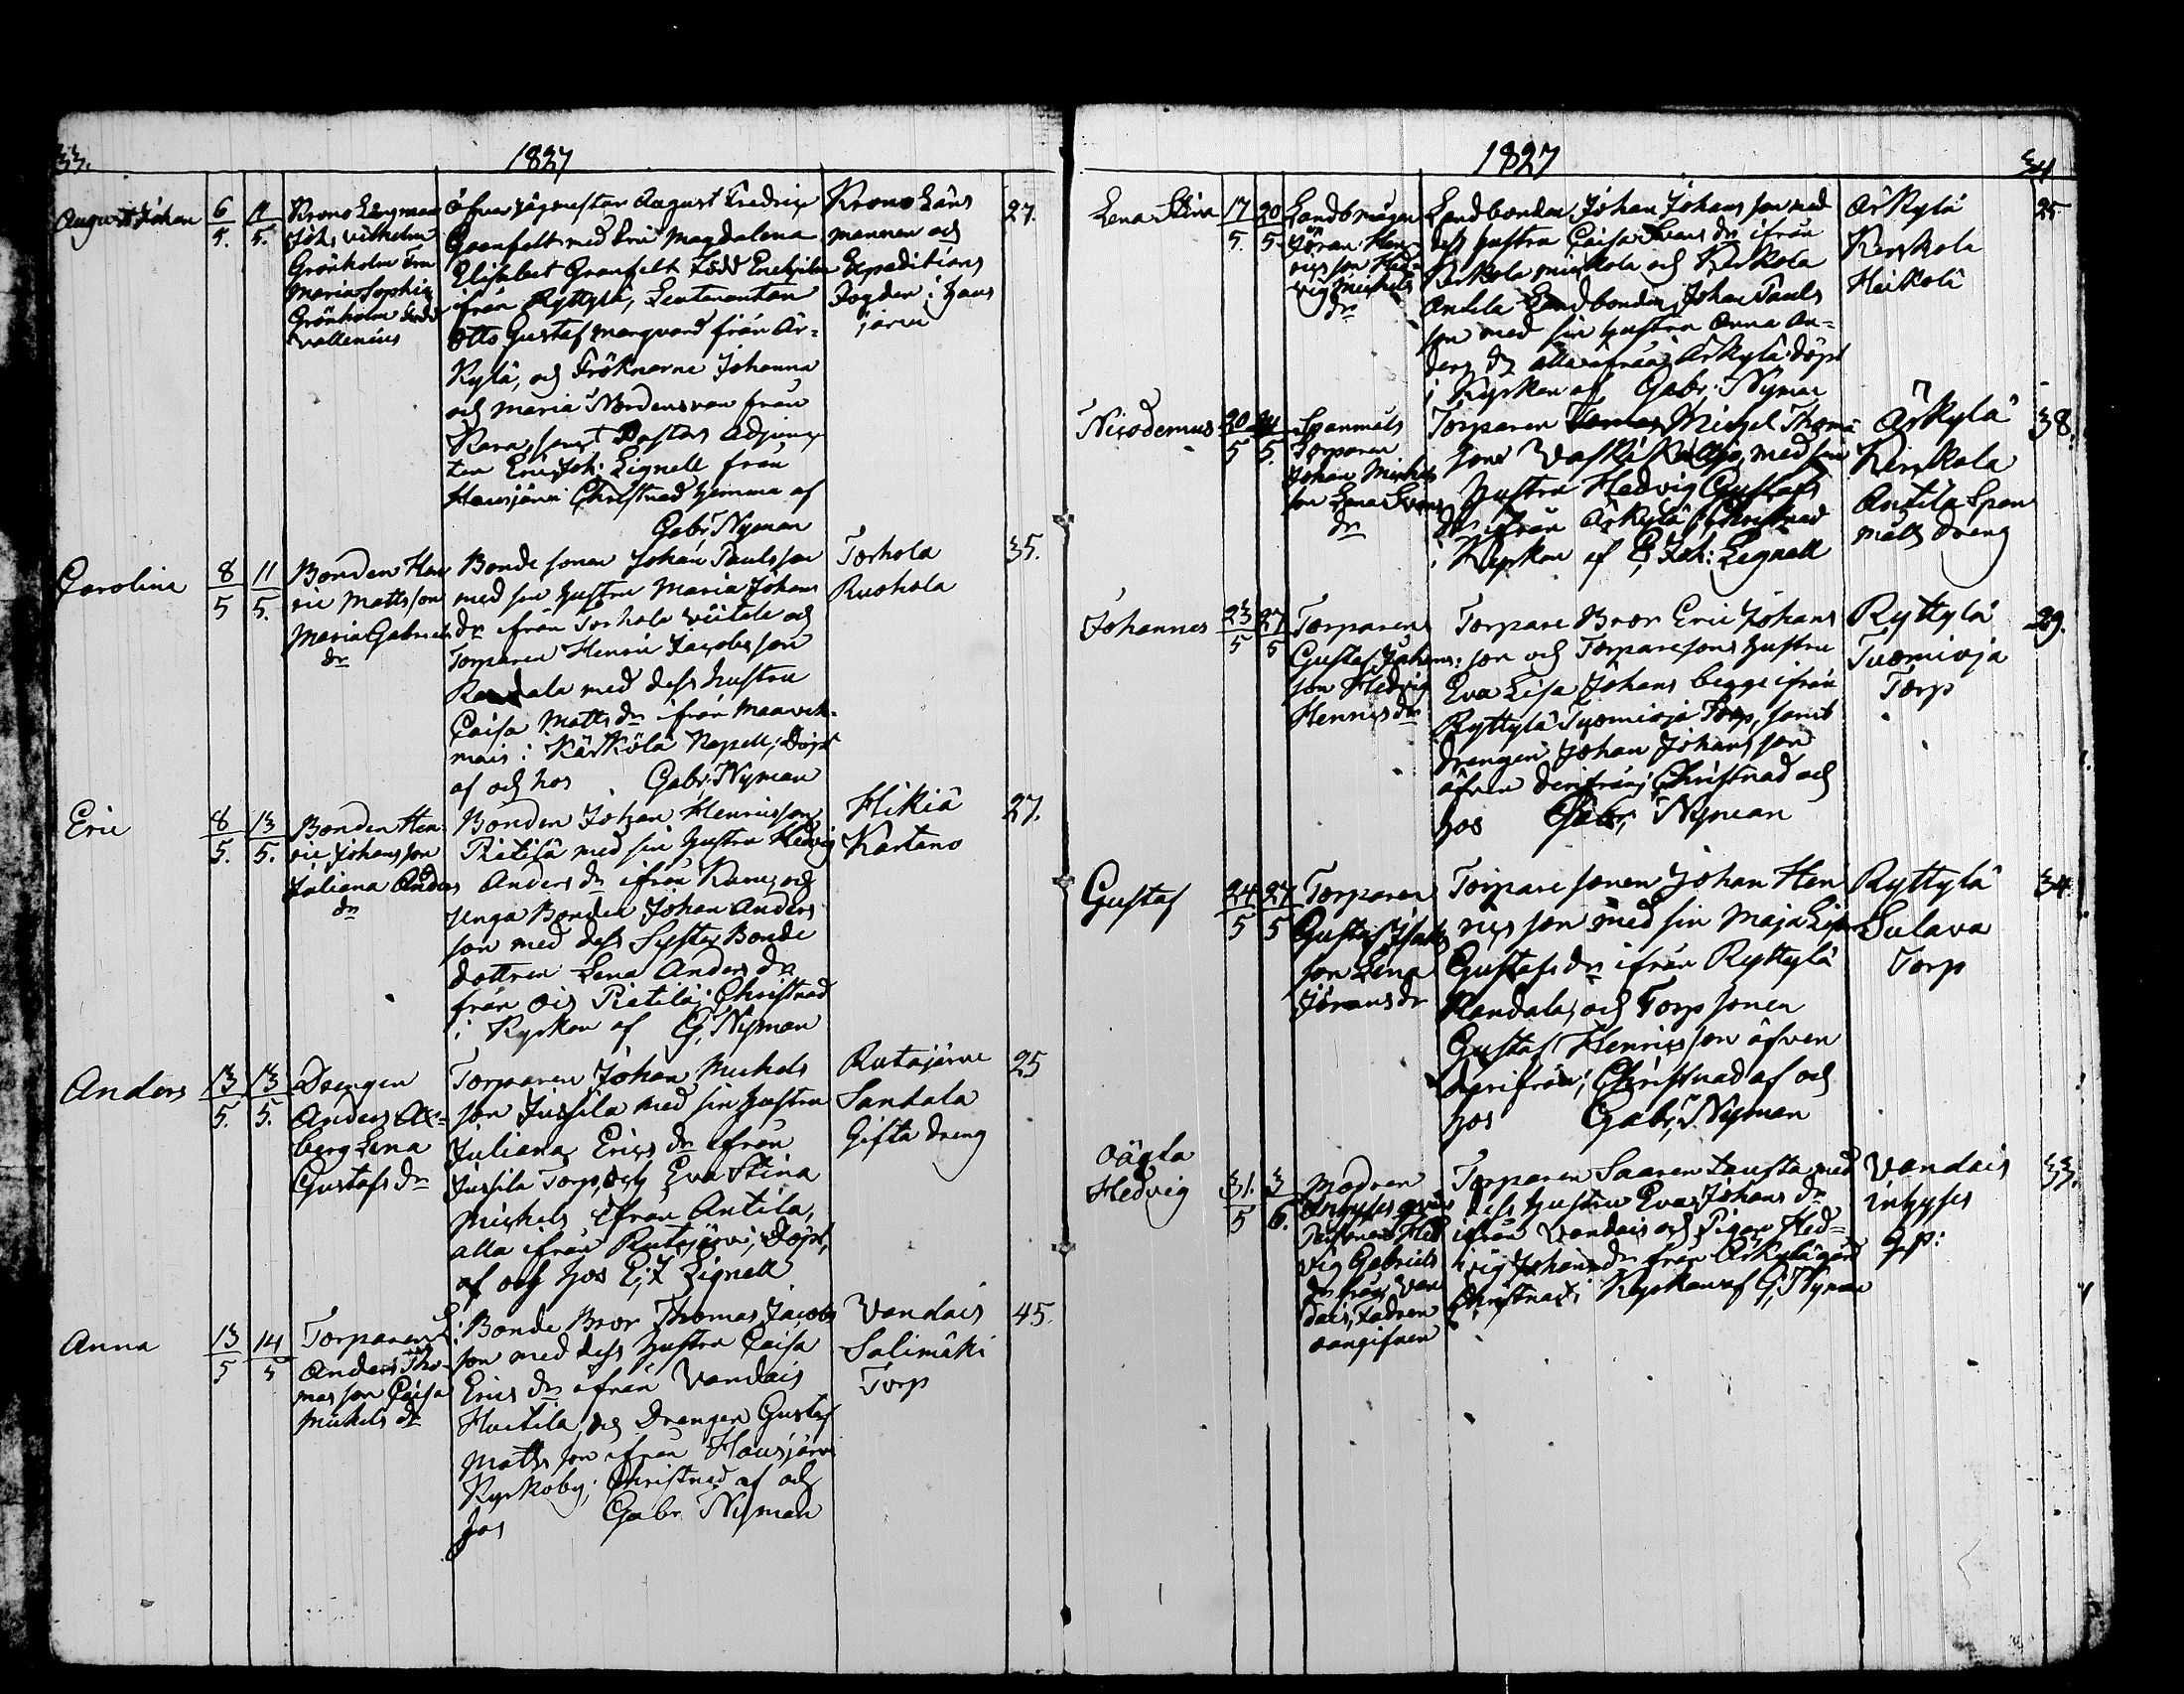 33.
1827
August Johan
6/5.
11/5.
Krono Länsman
Johs Vilhelm
Grönholm Fru
Maria Sophia
Grönholm född
Vallenius
Öfver Jägmestar August Fredric
Granfelt med Fru Magdalena
Elisabet Granfelt född
ifrån Ryttylä, Leutenanten
Otto Gustaf Marqvard från Är-
kylä, och Fröknarne Johanna
och Maria Nordensvan från
Kara, samt Pastors Adjunc
ten Eric Joh: Lignell från
Hausjärvi Christnad hemma af
Gabr; Nyman
Krono Läns
mannen och
Expeditions
Fogden i Haus
järvi
27.
Carolina
8/5
11/5.
Bonden Hen
ric Mattsson
Maria Gabriels
dr
Bonde sonen Johan Paulsson
med sin hustru Maria Johans
dr ifrån Torhola Viitala och
Torparen Henric Jacobsson
Randala med dess hustru
Caisa Matts dr ifrån
mais i Kärkölä Kapell; Döpt
af och hos Gabr; Nyman
Torhola
Ruohola
35.
Eric
8/5.
13/5.
Bonden Hen
ric Johansson
Juliana Anders
dr
Bonden Johan Henricsson
Pietilä med sin hustru Hedvig
Anders dr ifrån och
unga Bonden Johan Anders
son med dess Syster Bonde
dottren Lena Anders dr
från Ois Pietilä; Christnad
i Kyrkan af G, Nyman
Hikiä
Kartano
27.
Anders
13/5.
13/5.
Drengen
Anders
berg Lena
Gustafs dr
Torparen Johan Michels
son Jussila med sin hustru
Juliana Erics dr ifrån
Jussila Torp, och Eva Stina
Michels ifrån Antila,
alla ifrån Rutajärvi; Döpt,
af och hos E; J Lignell
Rutajärvi
Sandala
Gifta dreng
25
Anna
13/5
14/5
Torparen
Anders Tho-
mas son Caisa
Michels dr
Bonde Bror Thomas Jacobs
son med dess hustru Caisa
Erics dr ifrån Vandais
Huitila, och Drengen Gustaf
Matts son ifrån Hausjärvi
Kyrkoby; Christnad af och
hos Gabr Nyman
Vandais
Salimäki
Torp
45.
1827
34
Lena Stina
17/5.
20/5.
Landbmågen
Jöran Hen
rics son Hed-
vig Michels
dr
Landbonden Johan Johans son med
dess hustru Caisa dr ifrån
och Kerkola
Antila Landbonden Johan Pauls
son med sin hustru Anna An-
ders dr alla ifrån Ärkylä döpt
i Kyrkan af Gabr; Nyman
Ärkylä
Kerkola
Heikolä
25
Nicodemus
20/5
5.
Spanmåls
Torparen
Johan Michels
son Lena
dr
Torparen Michel Thoma
sons Vaski med sin
hustru Hedvig Gustafs
dr ifrån Ärkylä Christnad
i Kyrkan af E; Joh: Lignell
Ärkylä
Kerkola
Antila Span
måls dreng
38.
Johannes
23/5
27/5
Torparen
Gustaf Johans:
son Hedvig
Henrics dr
Torpare Bror Eric Johans
son och Torparesons hustru
Eva Lisa Johans begge ifrån
Ryttylä Tuomioja Torp, samt
drengen Johan Johans son
äfven derifrån; Christnad och
hos Gabr; Nyman
Ryttylä
Tuomioja
Torp
29.
Gustaf
24/5
27/5
Torparen
Gustaf Isaks
son Lena
Jörans dr
Torpare sonen Johan Hen
rics son med sin Maja Lisa
Gustafs dr ifrån Ryttylä
Randala; och Torp sonen
Gustaf Henrics son äfven
derifrån; Christnad af och
hos Gabr; Nyman
Ryttylä
Sulava
Torp
34.
Oägta
Hedvig
31./5
3/6.
Modren
Inhyses
Hed
vig Gabriels
dr från Van
dais, Fadren
oangifven
Torparen Saaren tausta med
dess hustru Eva Johans dr
ifrån Vandais och Pigan Hed-
vig Johans dr från Ärkylä gård
Christnad i Kyrkan af G; Nyman
Vandais
inhyses
33.